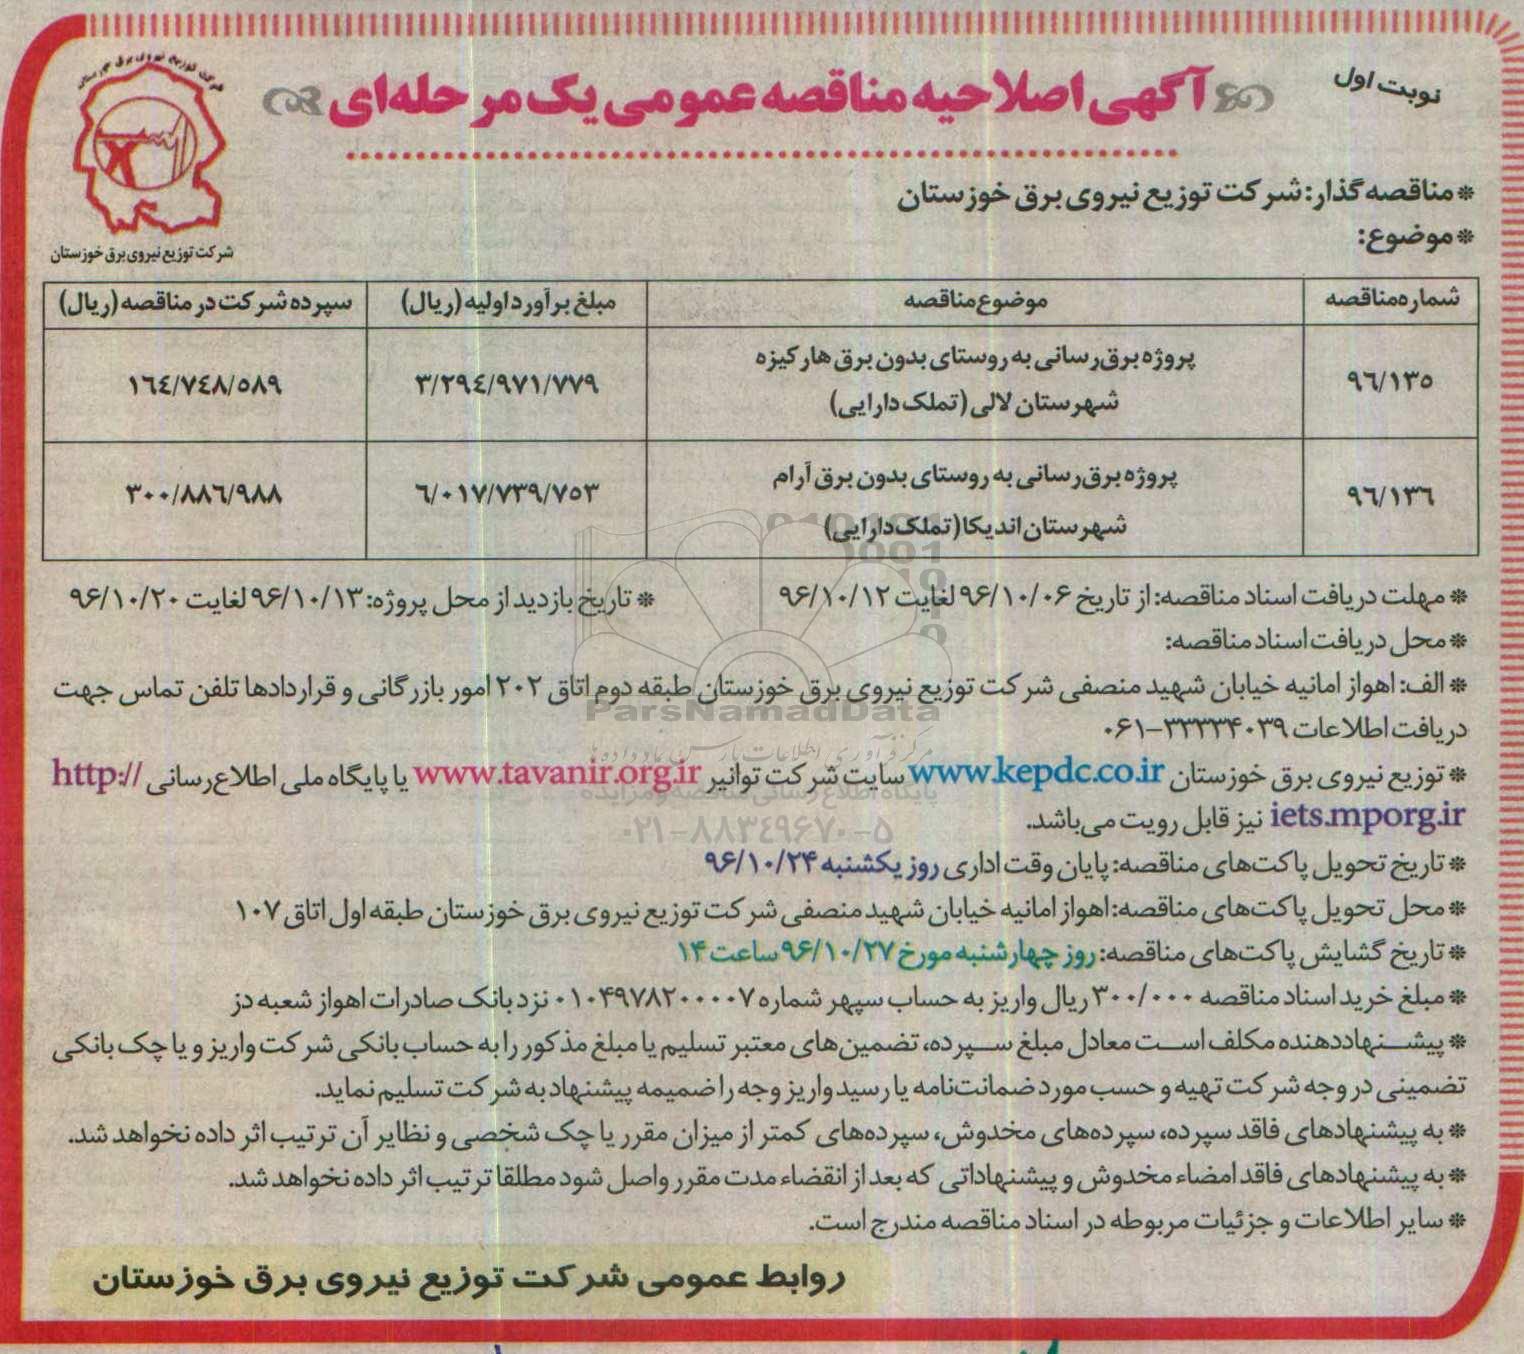 نوبت اول
آگهی اصلاحیه مناقصه عمومی یک مرحله‌ای
شرکت توزیع نیروی برق خوزستان
شرکت توزیع نیروی برق خوزستان
* مناقصه گذار: شرکت توزیع نیروی برق خوزستان
* موضوع:
شماره مناقصه | موضوع مناقصه | مبلغ برآورد اولیه (ریال) | سپرده شرکت در مناقصه (ریال)
۹۶/۱۳۵ | پروژه برق‌رسانی به روستای بدون برق هارکیزه شهرستان لالی (تملک دارایی) | ۳/۲۹٤/۹۷۱/۷۷۹ | ۱٦٤/۷٤۸/۵۸۹
۹٦/۱۳٦ | پروژه برق‌رسانی به روستای بدون برق آرام شهرستان اندیکا (تملک دارایی) | ٦/۰۱۷/۷۳۹/۷۵۳ | ۳۰۰/۸۸٦/۹۸۸
* مهلت دریافت اسناد مناقصه: از تاریخ ۹۶/۱۰/۰۶ لغایت ۹۶/۱۰/۱۲ * تاریخ بازدید از محل پروژه: ۹۶/۱۰/۱۳ لغایت ۹۶/۱۰/۲۰
* محل دریافت اسناد مناقصه:
* الف: اهواز امانیه خیابان شهید منصفی شرکت توزیع نیروی برق خوزستان طبقه دوم اتاق ۲۰۲ امور بازرگانی و قراردادها تلفن تماس جهت
دریافت اطلاعات ۳۳۳۳۴۰۳۹-۰۶۱
* توزیع نیروی برق خوزستان www.kepdc.co.ir سایت شرکت توانیر www.tavanir.org.ir یا پایگاه ملی اطلاع‌رسانی http://
iets.mporg.ir نیز قابل رویت می‌باشد.
* تاریخ تحویل پاکت‌های مناقصه: پایان وقت اداری روز یکشنبه ۹۶/۱۰/۲۴
* محل تحویل پاکت‌های مناقصه: اهواز امانیه خیابان شهید منصفی شرکت توزیع نیروی برق خوزستان طبقه اول اتاق ۱۰۷
* تاریخ گشایش پاکت‌های مناقصه: روز چهارشنبه مورخ ۹۶/۱۰/۲۷ ساعت ۱۴
* مبلغ خرید اسناد مناقصه ۳۰۰/۰۰۰ ریال واریز به حساب سپهر شماره ۰۱۰۴۹۷۸۲۰۰۰۰۷ نزد بانک صادرات اهواز شعبه دز
* پیشنهاددهنده مکلف است معادل مبلغ سپرده، تضمین‌های معتبر تسلیم یا مبلغ مذکور را به حساب بانکی شرکت واریز و یا چک بانکی
تضمینی در وجه شرکت تهیه و حسب مورد ضمانت‌نامه یا رسید واریز وجه را ضمیمه پیشنهاد به شرکت تسلیم نماید.
* به پیشنهادهای فاقد سپرده، سپرده‌های مخدوش، سپرده‌های کمتر از میزان مقرر یا چک شخصی و نظایر آن ترتیب اثر داده نخواهد شد.
* به پیشنهادهای فاقد امضاء مخدوش و پیشنهاداتی که بعد از انقضاء مدت مقرر واصل شود مطلقا ترتیب اثر داده نخواهد شد.
* سایر اطلاعات و جزئیات مربوطه در اسناد مناقصه مندرج است.
روابط عمومی شرکت توزیع نیروی برق خوزستان
ParsNamadData
مرکز فرآوری اطلاعات پارس نماد داده‌ها
پایگاه اطلاع رسانی مناقصه و مزایده
۰۲۱-۸۸۳٤۹٦۷۰-۵